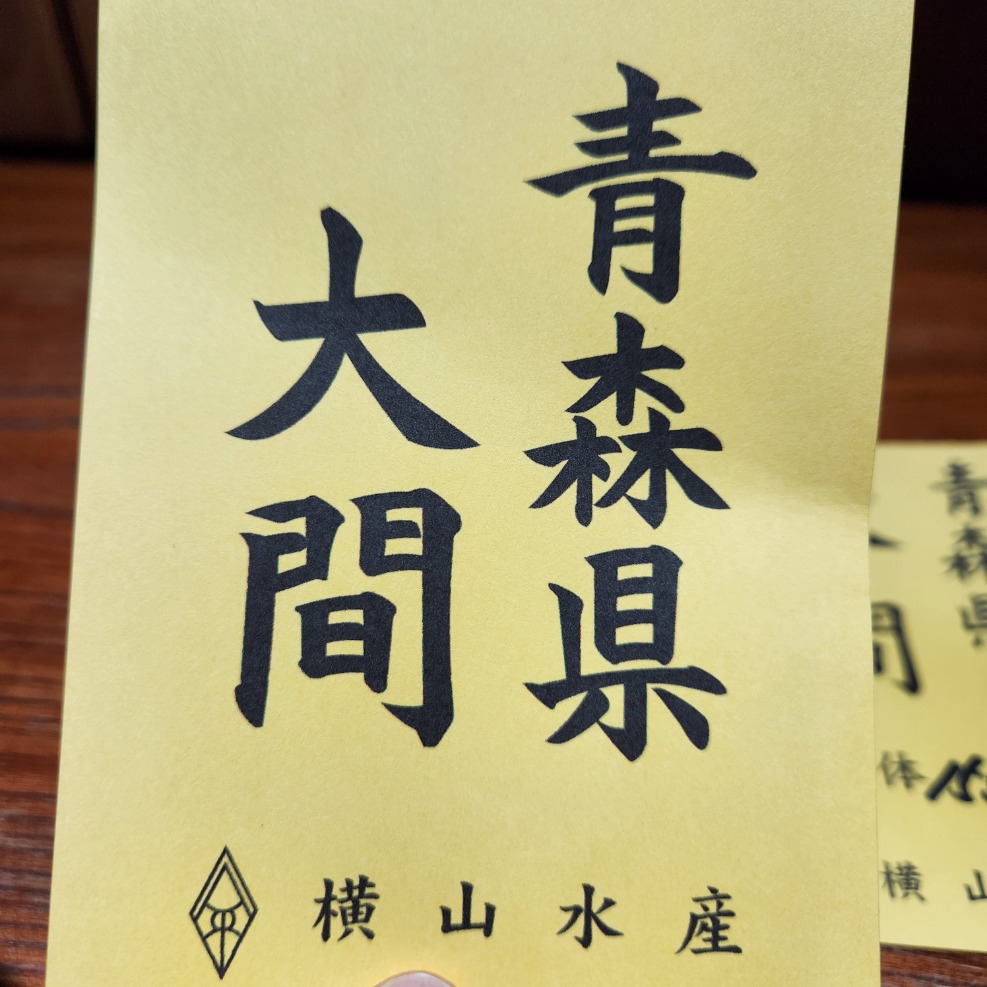 青森県
大間
横山水産
青森県
間
体
横山